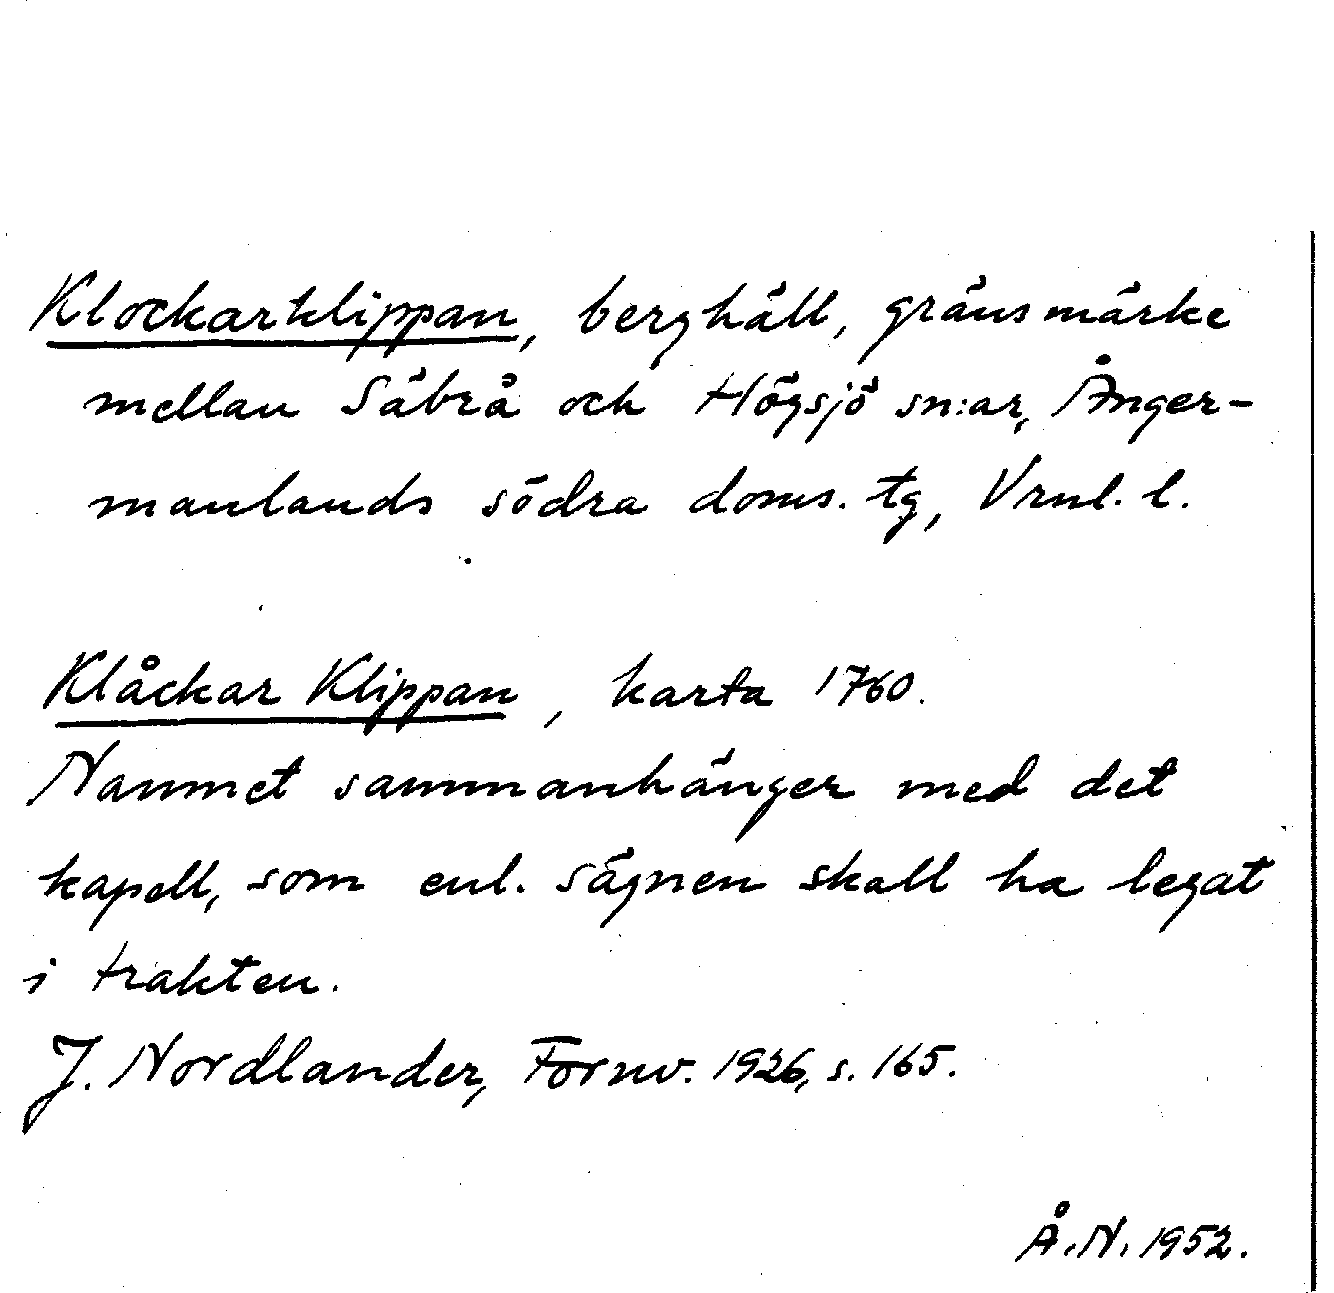 Klockarklippan, berghäll, gränsmärke
mellan Säbrå och Högsjö sn:ar, Ånger-
manlands södra doms. tg, Vrnl. l.
Klåckar Klippan, karta 1760.
Namnet sammanhänger med det
kapell, som enl. sägnen skall ha legat
i trakten.
J. Nordlander, Fornv. 1926, s. 165.
Å.N. 1952.